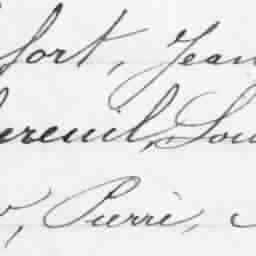 fort, Jean
ereuil, Lou
, Pierre,